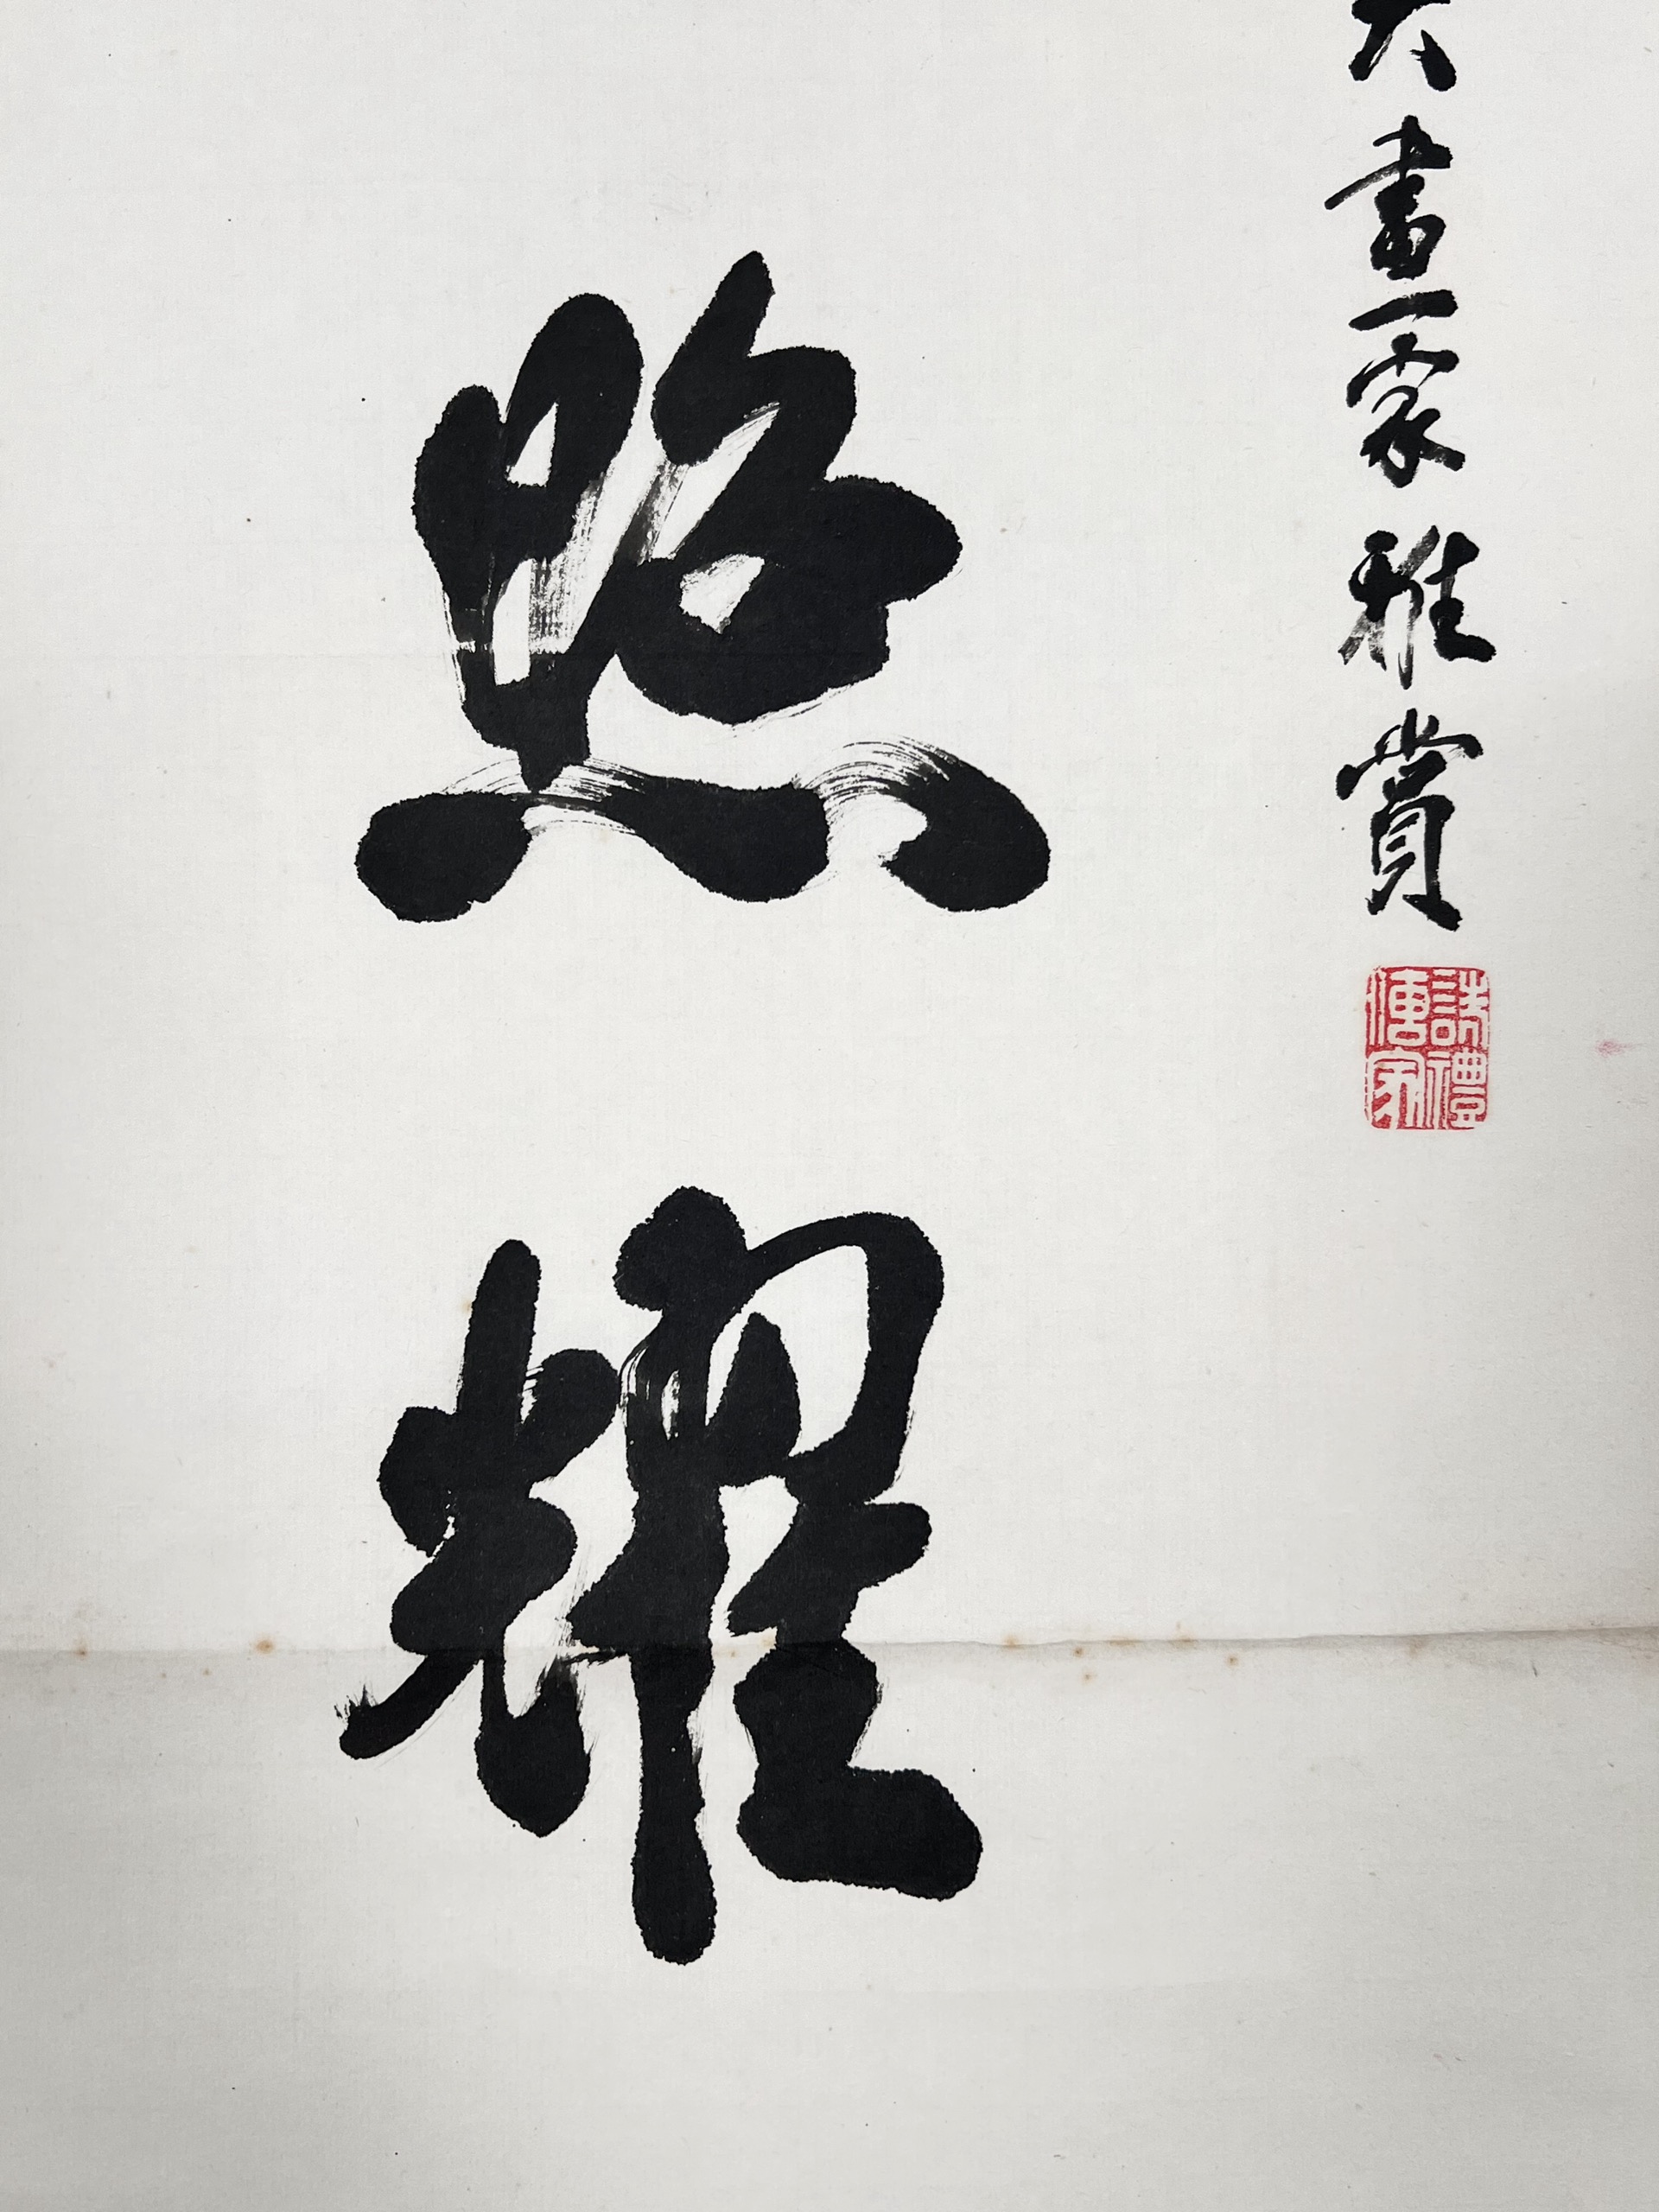 大畫家雅賞
詩禮傳家
照耀